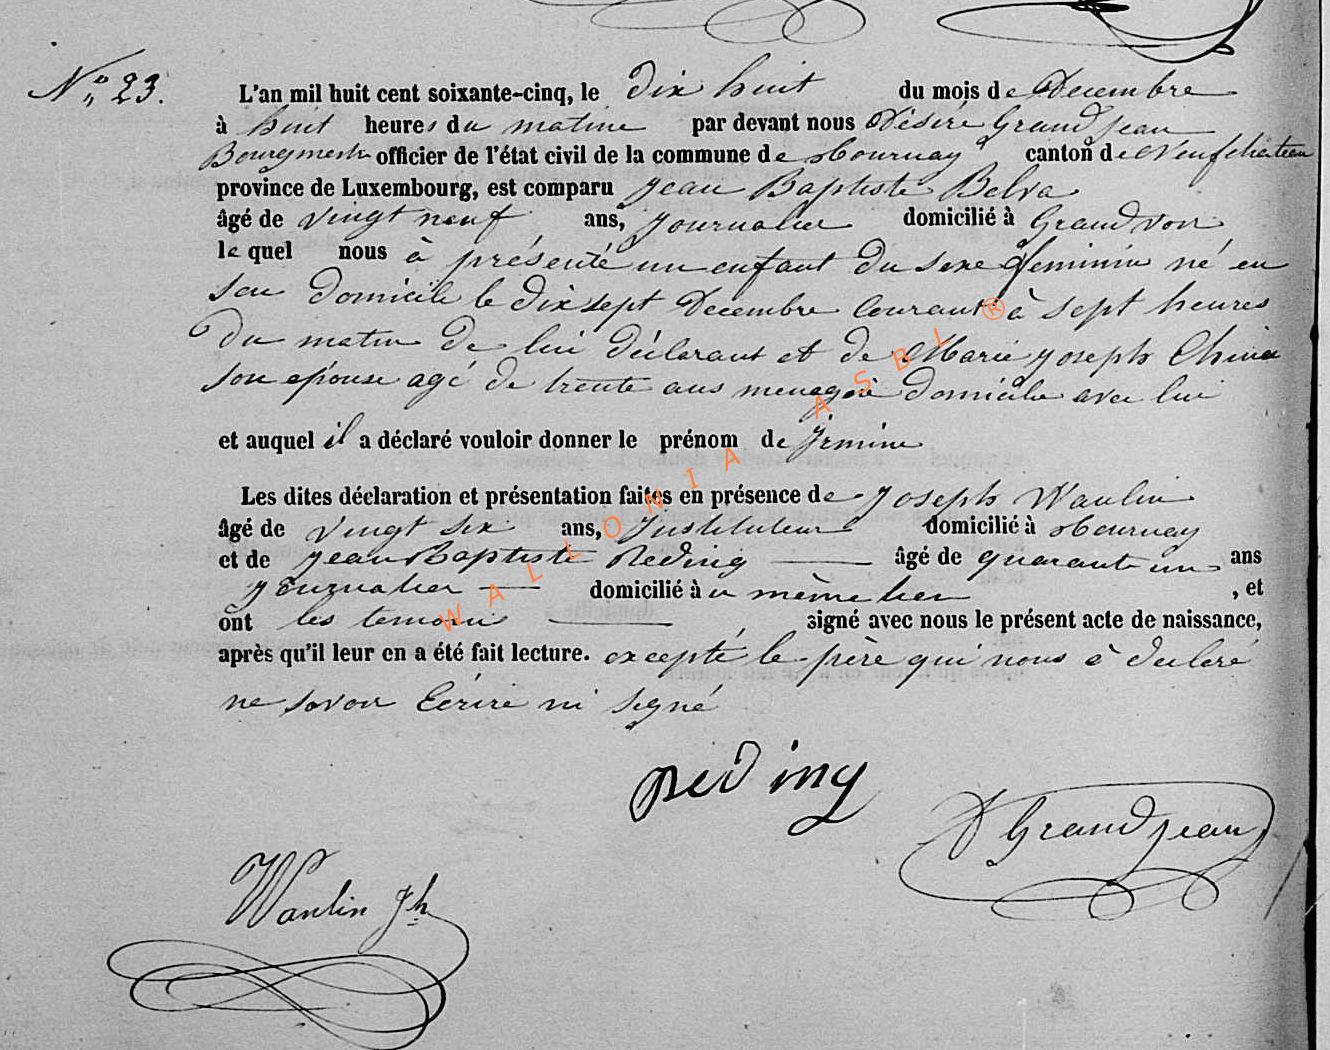 N° 23.
L'an mil huit cent soixante-cinq, le dix huit du mois de Decembre
à huit heures du matin par devant nous Désiré Grandjean
Bourgmestre officier de l'état civil de la commune de Tournay canton de Neufchâteau
province de Luxembourg, est comparu Jean Baptiste Belva
âgé de vingt neuf ans, Journalier domicilié à Grandvoir
le quel nous à présenté un enfant du sexe féminin né en
son domicile le dix sept Decembre Courant à sept heures
du matin de lui déclarant et de Marie Joseph
son epouse agé de trente ans menagère domicile avec lui
et auquel il a déclaré vouloir donner le prénom de Irmine
Les dites déclaration et présentation faites en présence de Joseph Wanlin
âgé de vingt six ans, Instituteur domicilié à Tournay
et de Jean Baptiste Reding âgé de quarante un ans
Journalier domicilié à u même lieu , et
ont les temoins signé avec nous le présent acte de naissance,
après qu'il leur en a été fait lecture. excepté le père qui nous à declaré
ne savoir Ecrire ni signé
Reding
D Grandjean
Wanlin Jh
WALLONIA ASBL ®